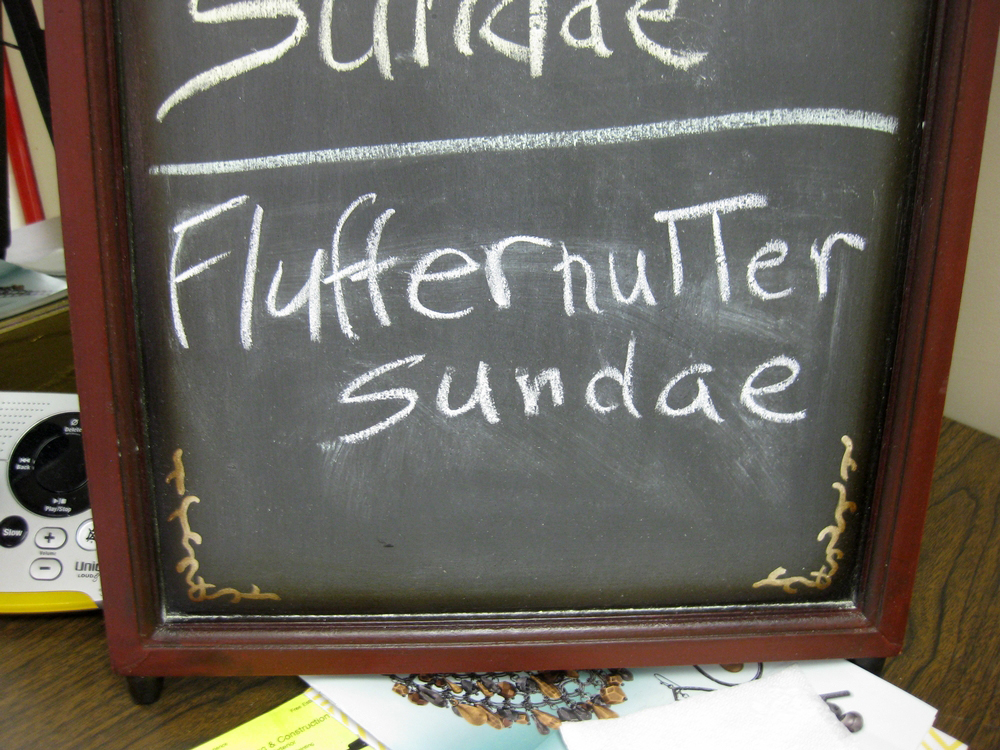 Sundae
Fluffernutter
Sundae
Back
Play/Stop
Slow
+
Volume
-
& Construction